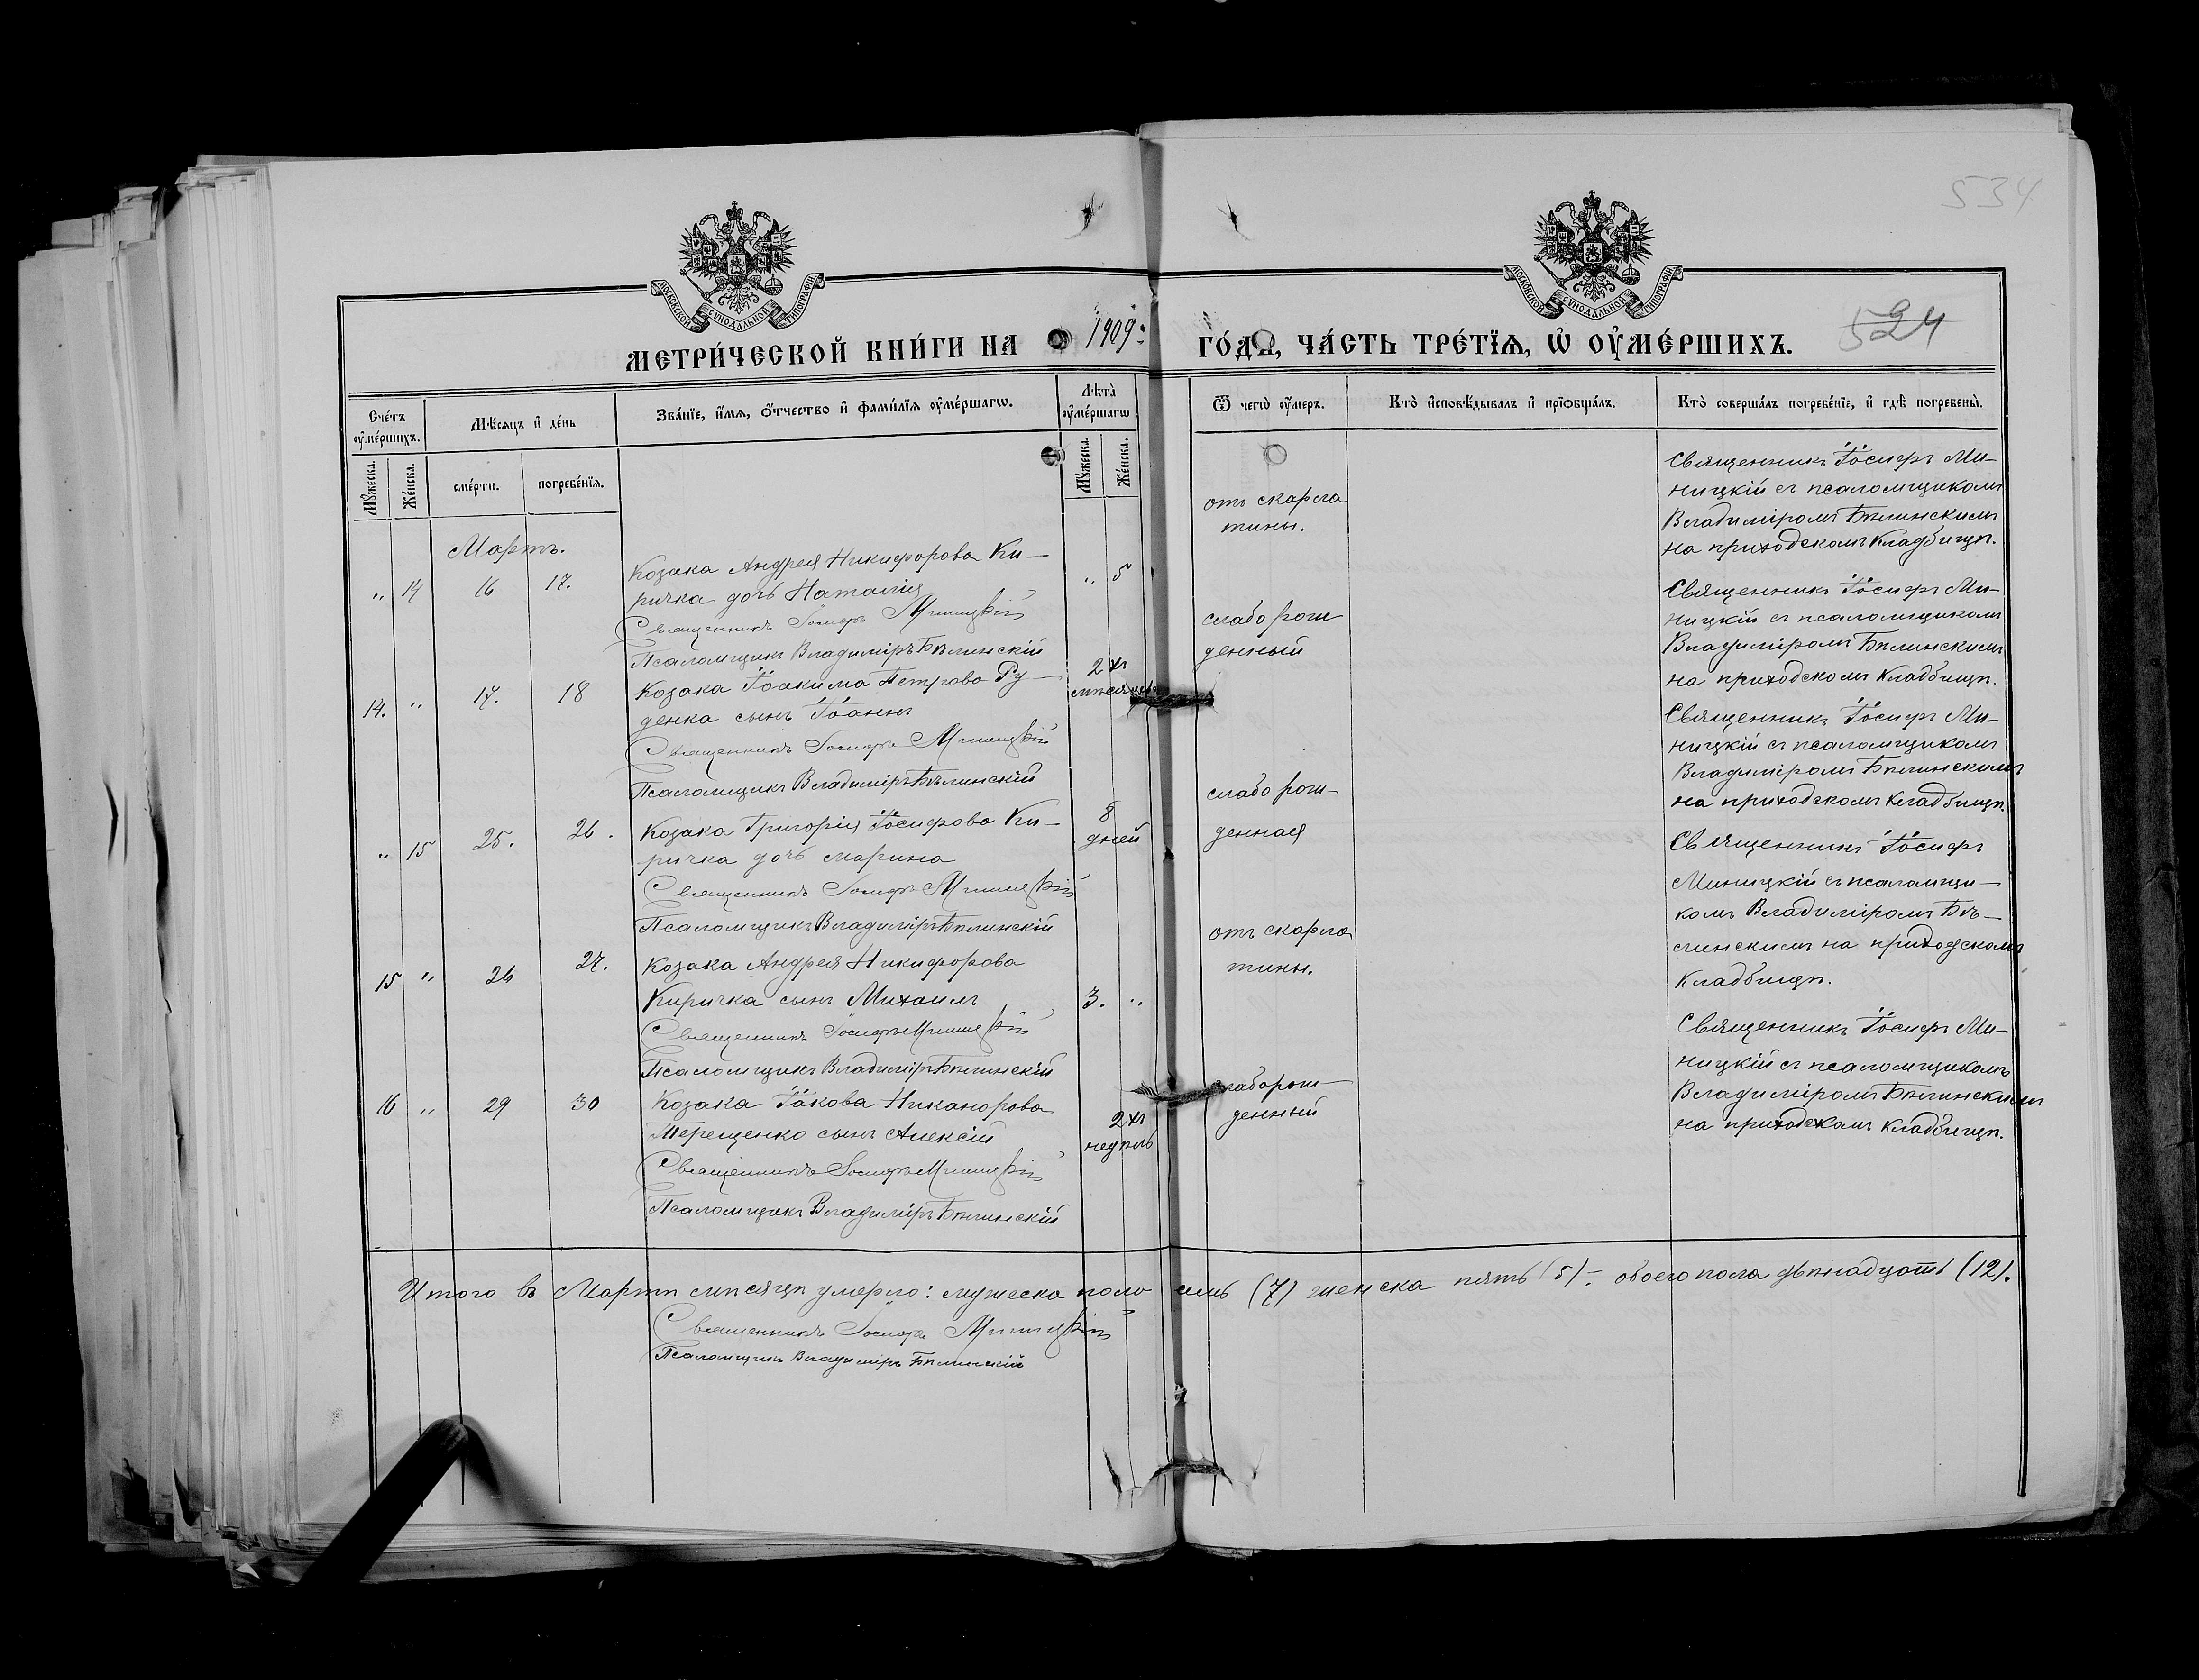 534
МОСКОВСКОЙ СѴНОДАЛЬНОЙ ТИПОГРАФІИ
МОСКОВСКОЙ СѴНОДАЛЬНОЙ ТИПОГРАФІИ
МЕТРИ́ЧЕСКОЙ КНИ́ГИ НА 1909 ГО́ДЪ, ЧА́СТЬ ТРЕ́ТІѦ, Ѡ ОУ҆МЕ́РШИХЪ.
524
Сче́тъ оу҆ме́ршихъ.
Мѣ́сѧцъ и҆ де́нь
Зва́нїе, и҆́мѧ, ѻ҆́тчество и҆ фами́лїѧ оу҆ме́ршагѡ.
Лѣ́та оу҆ме́ршагѡ
Ѿ чегѡ̀ оу҆́меръ.
Кто̀ и҆сповѣ́дывалъ и҆ прїѡбща́лъ.
Кто̀ соверша́лъ погребе́нїе, и҆ гдѣ̀ погребены̀.
Мꙋ́жеска.
Же́нска.
сме́рти.
погребе́нїѧ.
Мꙋ́жеска.
Же́нска.
Мартъ.
" 14 16 17.
Козака Андрея Никифорова Ки-
ричка дочь Наталія
" 5
Священникъ Іосифъ Миницкій
Псаломщикъ Владиміръ Бѣлинскій
отъ скарла
тины.
Священникъ Іосифъ Ми-
ницкій съ псаломщикомъ
Владиміромъ Бѣлинскимъ
на приходскомъ кладбищѣ.
14. " 17. 18
Козака Іоакима Петрова Ру-
денка сынъ Іоаннъ
2хъ
мѣсяцевъ
Священникъ Іосифъ Миницкій
Псаломщикъ Владиміръ Бѣлинскій
слабо рож
денный
Священникъ Іосифъ Ми-
ницкій съ псаломщикомъ
Владиміромъ Бѣлинскимъ
на приходскомъ кладбищѣ.
" 15 25. 26.
Козака Григорія Іосифова Ки-
ричка дочь Марина
8
дней
Священникъ Іосифъ Миницкій
Псаломщикъ Владиміръ Бѣлинскій
слабо рож-
денная
Священникъ Іосифъ Ми-
ницкій съ псаломщикомъ
Владиміромъ Бѣлинскимъ
на приходскомъ кладбищѣ.
15 " 26 27.
Козака Андрея Никифорова
Киричка сынъ Михаилъ
3. "
Священникъ Іосифъ Миницкій
Псаломщикъ Владиміръ Бѣлинскій
отъ скарла
тины.
Священникъ Іосифъ
Миницкій съ псаломщи-
комъ Владиміромъ Бѣ-
линскимъ на приходскомъ
кладбищѣ.
16 " 29 30
Козака Іакова Никанорова
Терещенко сынъ Алексій
2хъ
недѣль
Священникъ Іосифъ Миницкій
Псаломщикъ Владиміръ Бѣлинскій
слаборож-
денный
Священникъ Іосифъ Ми-
ницкій съ псаломщикомъ
Владиміромъ Бѣлинскимъ
на приходскомъ кладбищѣ.
Итого въ Мартѣ мѣсяцѣ умерло: мужеска пола семь (7) женска пять (5) - обоего пола двѣнадцать (12).
Священникъ Іосифъ Миницкій
Псаломщикъ Владиміръ Бѣлинскій